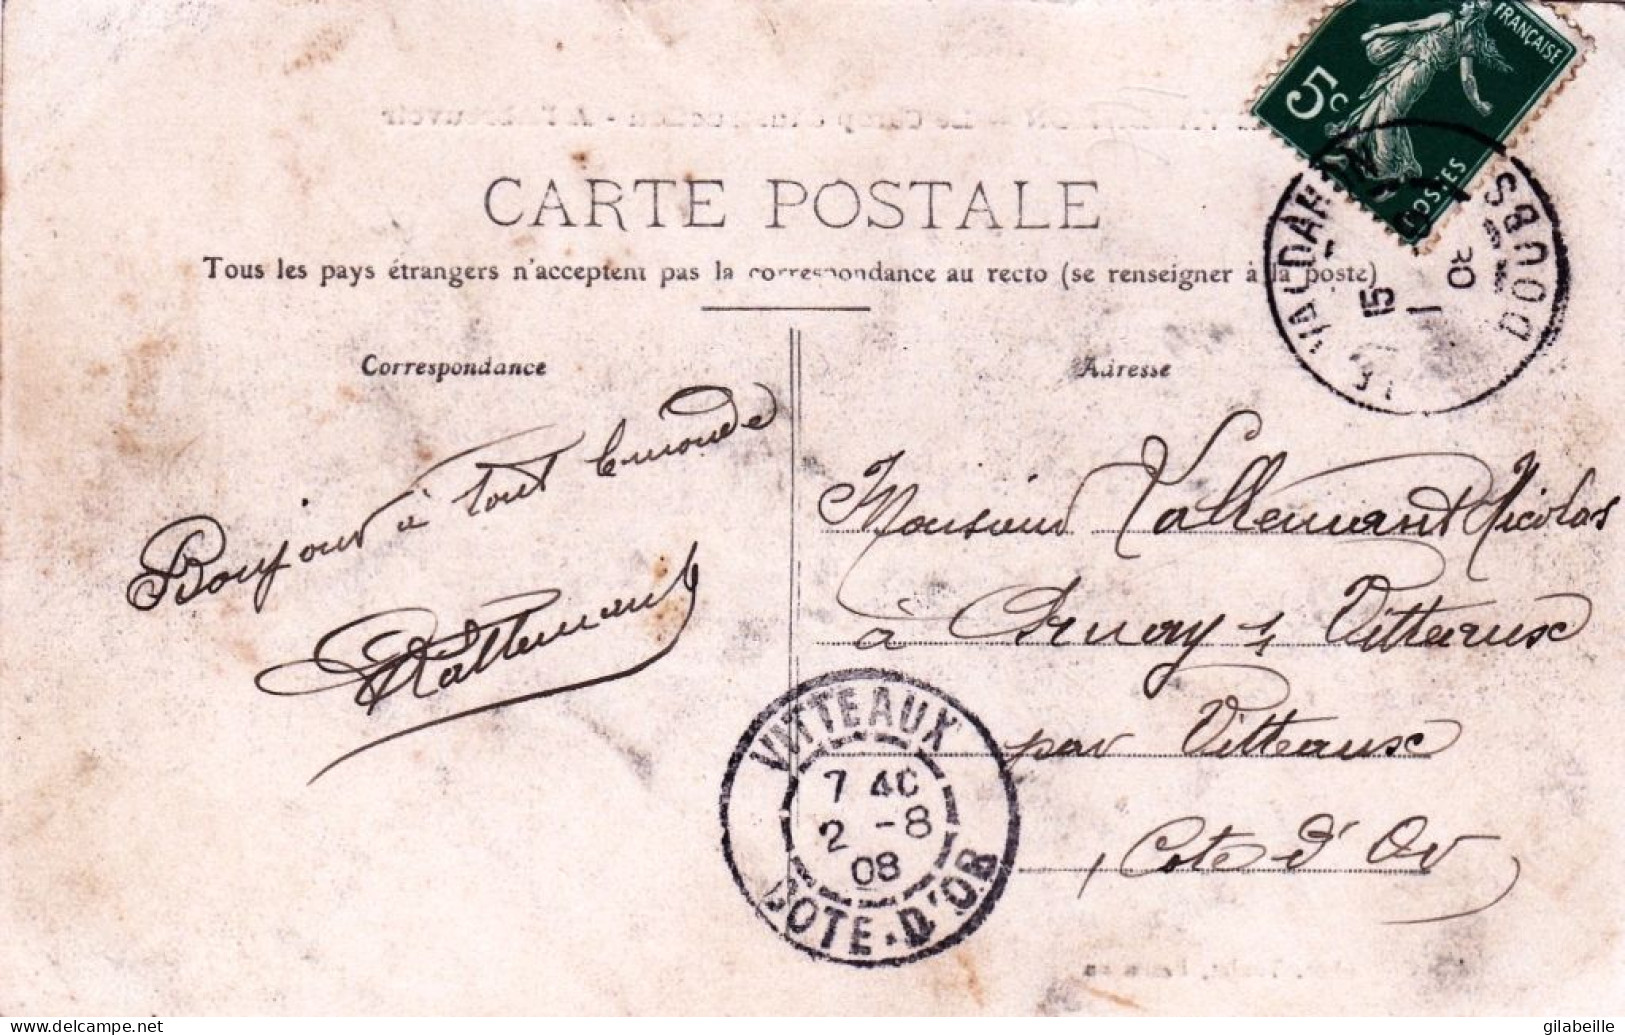 FRANÇAISE
5c
POSTES
CARTE POSTALE
Tous les pays étrangers n'acceptent pas la correspondance au recto (se renseigner à la poste)
LE VALDAHON
15
1
80
DOUBS
Correspondance
Adresse
Bonjour à tout le monde
Vallemant
Monsieur Vallemant Nicolas
à Arnay s/ Vitteaux
par Vitteaux
Cote d'Or
VITTEAUX
7 40
2 -8
08
COTE-D'OR
www.delcampe.net
gilabeille